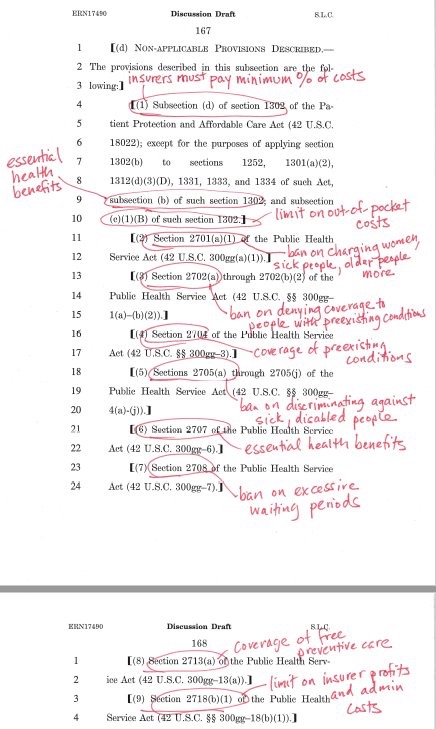 ERN17490 Discussion Draft S.L.C.
167
1 【(d) NON-APPLICABLE PROVISIONS DESCRIBED.—
2 The provisions described in this subsection are the fol-
insurers must pay minimum % of costs
3 lowing:】
4 【(1) Subsection (d) of section 1302 of the Pa-
5 tient Protection and Affordable Care Act (42 U.S.C.
6 18022); except for the purposes of applying section
7 1302(b) to sections 1252, 1301(a)(2),
essential
health
benefits
8 1312(d)(3)(D), 1331, 1333, and 1334 of such Act,
9 subsection (b) of such section 1302; and subsection
10 (c)(1)(B) of such section 1302.】
limit on out-of-pocket
costs
11 【(2) Section 2701(a)(1) of the Public Health
12 Service Act (42 U.S.C. 300gg(a)(1)).】
ban on charging women,
sick people, older people
more
13 【(3) Section 2702(a) through 2702(b)(2) of the
14 Public Health Service Act (42 U.S.C. §§ 300gg–
15 1(a)–(b)(2)).】
ban on denying coverage to
people with preexisting conditions
16 【(4) Section 2704 of the Public Health Service
17 Act (42 U.S.C. §§ 300gg–3).】
coverage of preexisting
conditions
18 【(5) Sections 2705(a) through 2705(j) of the
19 Public Health Service Act (42 U.S.C. §§ 300gg–
20 4(a)-(j)).】
ban on discriminating against
sick, disabled people
21 【(6) Section 2707 of the Public Health Service
22 Act (42 U.S.C. 300gg–6).】
essential health benefits
23 【(7) Section 2708 of the Public Health Service
24 Act (42 U.S.C. 300gg–7).】
ban on excessive
waiting periods
ERN17490 Discussion Draft S.L.C.
168
coverage of free
preventive care
1 【(8) Section 2713(a) of the Public Health Serv-
2 ice Act (42 U.S.C. 300gg–13(a)).】
limit on insurer profits
and admin
costs
3 【(9) Section 2718(b)(1) of the Public Health
4 Service Act (42 U.S.C. §§ 300gg–18(b)(1)).】